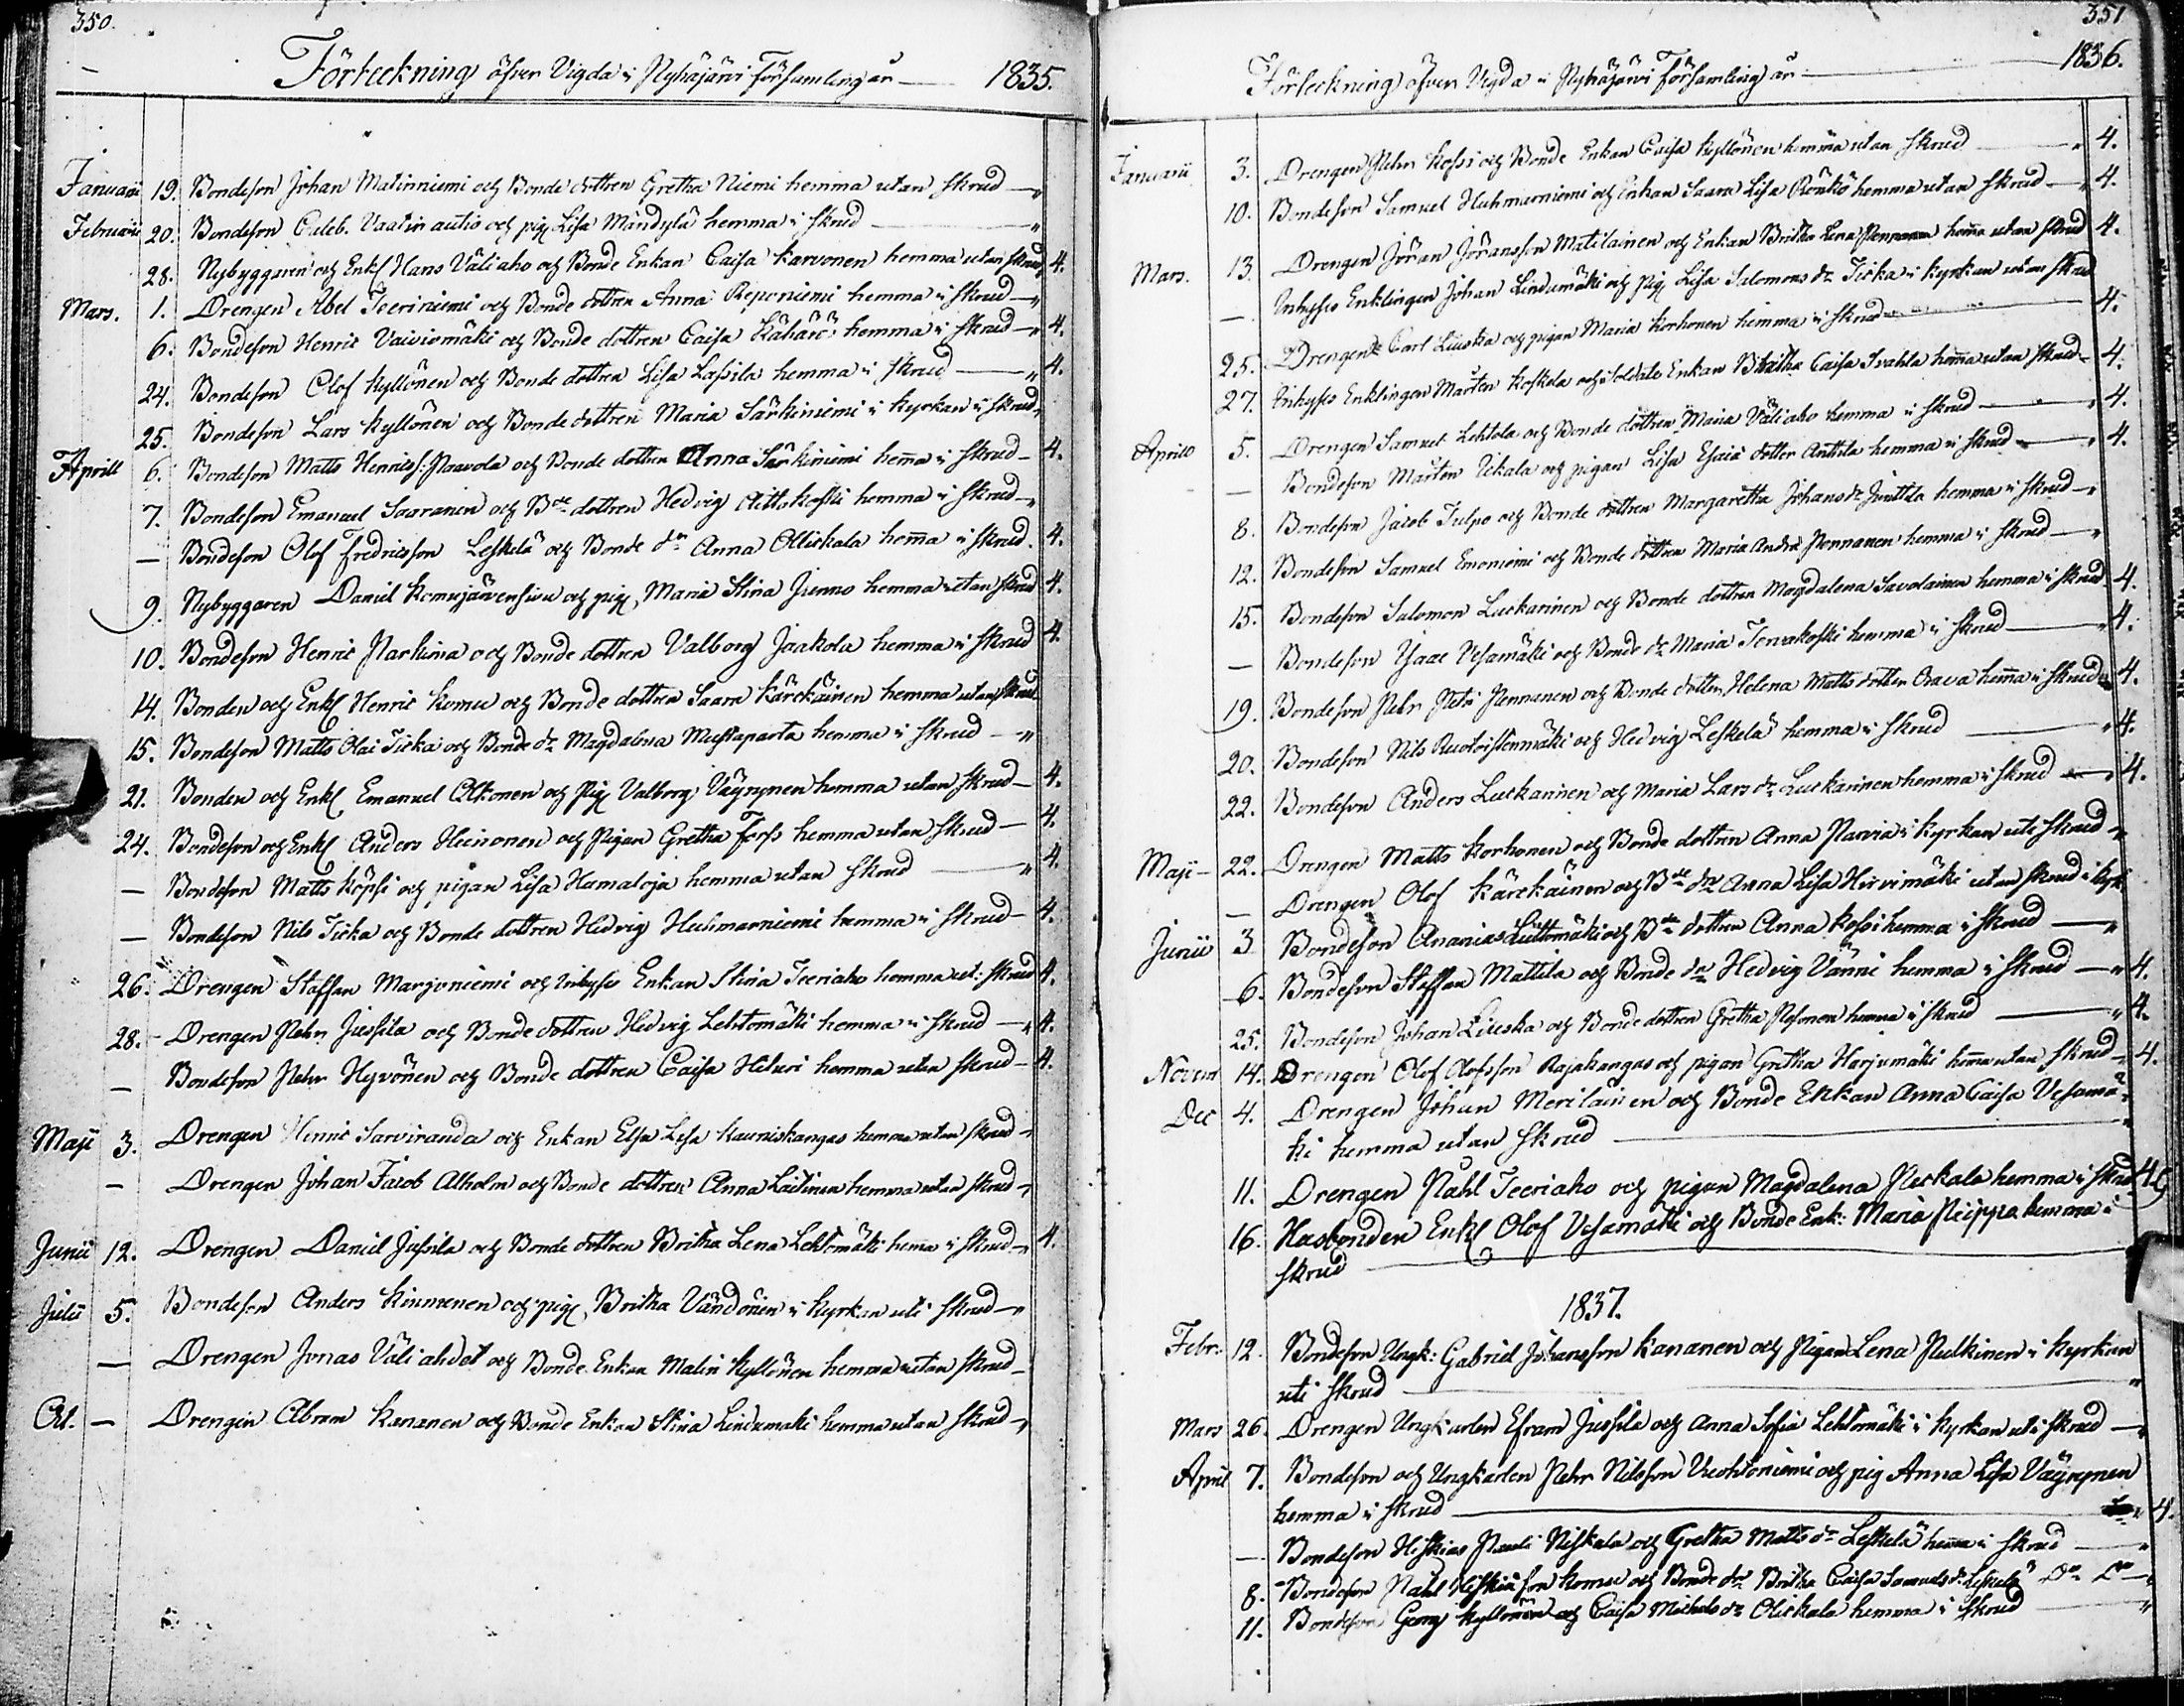 350.
Förteckning öfver Vigda i Pyhäjärvi Församling år — 1835.
Januarii 19. Bondeson Johan Matinniemi och Bonde dottren Gretha Niemi hemma utan skrud — "
Februarii 20. Bondeson Caleb. Vaatin autio och pig. Lisa Mändylä hemma i skrud — "
28. Nybyggaren och Enkl. Hans Väliaho och Bonde Enkan Caisa Karvonen hemma utan skrud 4.
Mars. 1. Drengen Abel Teeriniemi och Bonde dottren Anna Reponiemi hemma i skrud — "
6. Bondeson Henric Vaiviomäki och Bonde dottren Caisa Kähärö hemma i skrud — " 4.
24. Bondeson Olof Kyllönen och Bonde dottren Lisa Lassila hemma i skrud — " 4.
25. Bondeson Lars Kyllönen och Bonde dottren Maria Särkiniemi i Kyrkan i skrud "
Aprill 6. Bondeson Matts Henricss: Paavola och Bonde dottren Anna Särkiniemi hem̄a i skrud — 4.
7. Bondeson Emanuel Saaranen och Bde dottren Hedvig Aittokoski hemma i skrud — "
— Bondeson Olof Fredricsson Leskelä och Bonde dn Anna Ollickala hem̄a i skrud. 4.
9. Nybyggaren Daniel Komujärvensivu och pig. Maria Stina Juuno hemma utan skrud 4.
10. Bondeson Henric Parkima och Bonde dottren Valborg Jaakola hemma i skrud 4.
14. Bonden och Enkl. Henric Komu och Bonde dottren Saara Kärckäinen hemma utan skrud
15. Bondeson Matts Olai Ticka och Bonde dr Magdalena Mustaparta hemma i skrud — "
21. Bonden och Enkl. Emanuel Olkonen och Pig. Valborg Väyrynen hemma utan skrud — 4.
24. Bondeson och Enkl. Anders Heinonen och Pigan Gretha Forss hemma utan skrud — 4.
— Bondeson Matts Köpsi och pigan Lisa Hamaloja hemma utan skrud — " 4.
— Bondeson Nils Ticka och Bonde dottren Hedvig Huhmarniemi hemma i skrud — 4.
26. Drengen Staffan Marjoniemi och Inhyses Enkan Stina Teeriaho hemma ut. skrud 4.
28. Drengen Pehr Jussila och Bonde dottren Hedvig Lehtomäki hemma i skrud — " 4.
— Bondeson Pehr Hyvönen och Bonde dottren Caisa Hiluri hemma utan skrud — 4.
Maji 3. Drengen Henric Sarviranda och Enkan Elsa Lisa Kauniskangas hemma utan skrud — "
— Drengen Johan Jacob Alholm och Bonde dottren Anna Laitinen hemma utan skrud — "
Junii 12. Drengen Daniel Jussila och Bonde dottren Britha Lena Lehtomäki hem̄a i skrud — " 4.
Julii 5. Bondeson Anders Kinnunen och pig. Britha Vändönen i Kyrkan uti skrud — "
— Drengen Jonas Väliahdet och Bonde Enkan Malin Kyllönen hemma utan skrud —
Oct. — Drengen Abram Kananen och Bonde Enkan Stina Lindumäki hemma utan skrud — "
351
Förteckning öfver Vigda i Pyhäjärvi Församling år — 1836.
Januarii 3. Drengen Pehr Kossi och Bonde Enkan Caisa Kyllönen hemma utan skrud — " 4.
10. Bondeson Samuel Huhmarniemi och Enkan Saara Lisa Rönkö hemma utan skrud — " 4.
Mars. 13. Drengen Jöran Jöransson Matilainen och Enkan Britha Lena Pennanen hem̄a utan skrud 4.
— Inhyses Enklingen Johan Lindumäki och pig. Lisa Salomons dr Ticka i Kyrkan utan skrud
25. Drengen Carl Liuska och pigan Maria Korhonen hemma i skrud — 4.
27. Inhyses Enklingen Mårten Koskela och Soldate Enkan Britha Caisa Ivahla hem̄a utan skrud — 4.
Aprill 5. Drengen Samuel Lehtola och Bonde dottren Maria Väliaho hemma i skrud — " 4.
— Bondeson Mårten Uckala och pigan Lisa Esaiæ dotter Anttila hemma i skrud — " 4.
8. Bondeson Jacob Tulpo och Bonde dottren Margaretha Johans dr Junttila hemma i skrud — "
12. Bondeson Samuel Emoniemi och Bonde dottren Maria Andræ Pennanen hemma i skrud — "
15. Bondeson Salomon Luckarinen och Bonde dottren Magdalena Savolainen hemma i skrud 4.
— Bondeson Isaac Vesamäki och Bonde dr Maria Tervakoski hemma i skrud — " 4.
19. Bondeson Pehr Petri Pennanen och Bonde dottren Helena Matts dotter Orava hem̄a i skrud 4.
20. Bondeson Nils Ruotoistenmäki och Hedvig Leskelä hemma i skrud — " 4.
22. Bondeson Anders Luckarinen och Maria Lars dr Luckarinen hemma i skrud — " 4.
Maji — 22. Drengen Matts Korhonen och Bonde dottren Anna Parvia i Kyrkan uti skrud — "
— Drengen Olof Kärckäinen och Bde dr Anna Lisa Hirvimäki utan skrud i Kyrk
Junii 3 Bondeson Ananias Luttomäki och Bde dottren Anna Kossi hemma i skrud — "
6. Bondeson Staffan Mattila och Bonde dr Hedvig Vänni hemma i skrud — " 4.
25. Bondeson Johan Liuska och Bonde dottren Gretha Pesonen hemma i skrud — " 4.
Novem 14. Drengen Olof Olofsson Rajakangas och pigan Gretha Harjumäki hem̄a utan skrud — 4.
Dec 4. Drengen Johan Meriläinen och Bonde Enkan Anna Caisa Vesamä-
ki hemma utan skrud — "
11. Drengen Påhl Teeriaho och pigan Magdalena Pirkala hemma i skrud 4
16. Husbonden Enkl. Olof Vesamäki och Bonde Enk: Maria Piippo hemma i
skrud —
1837.
Febr. 12. Bondeson Ungk: Gabriel Johansson Kananen och Pigan Lena Pulkinen i Kyrkan
uti skrud — "
Mars 26. Drengen Ungkarlen Efram Jussila och Anna Sofia Lehtomäki i Kyrkan uti skrud — "
April 7. Bondeson och Ungkarlen Pehr Nilsson Vuohtoniemi och pig Anna Lisa Väyrynen
hemma i skrud — " 4.
— Bondeson Hiskias Pauli Niskala och Gretha Matts dr Leskelä hem̄a i skrud — "
8. Bondeson Påhl Hiskiasson Komu och Bonde dr Britha Caisa Samuels dr Leskelä Do Do — "
11. Bondeson Georg Kyllönen och Caisa Michels dr Olickala hemma i skrud — "